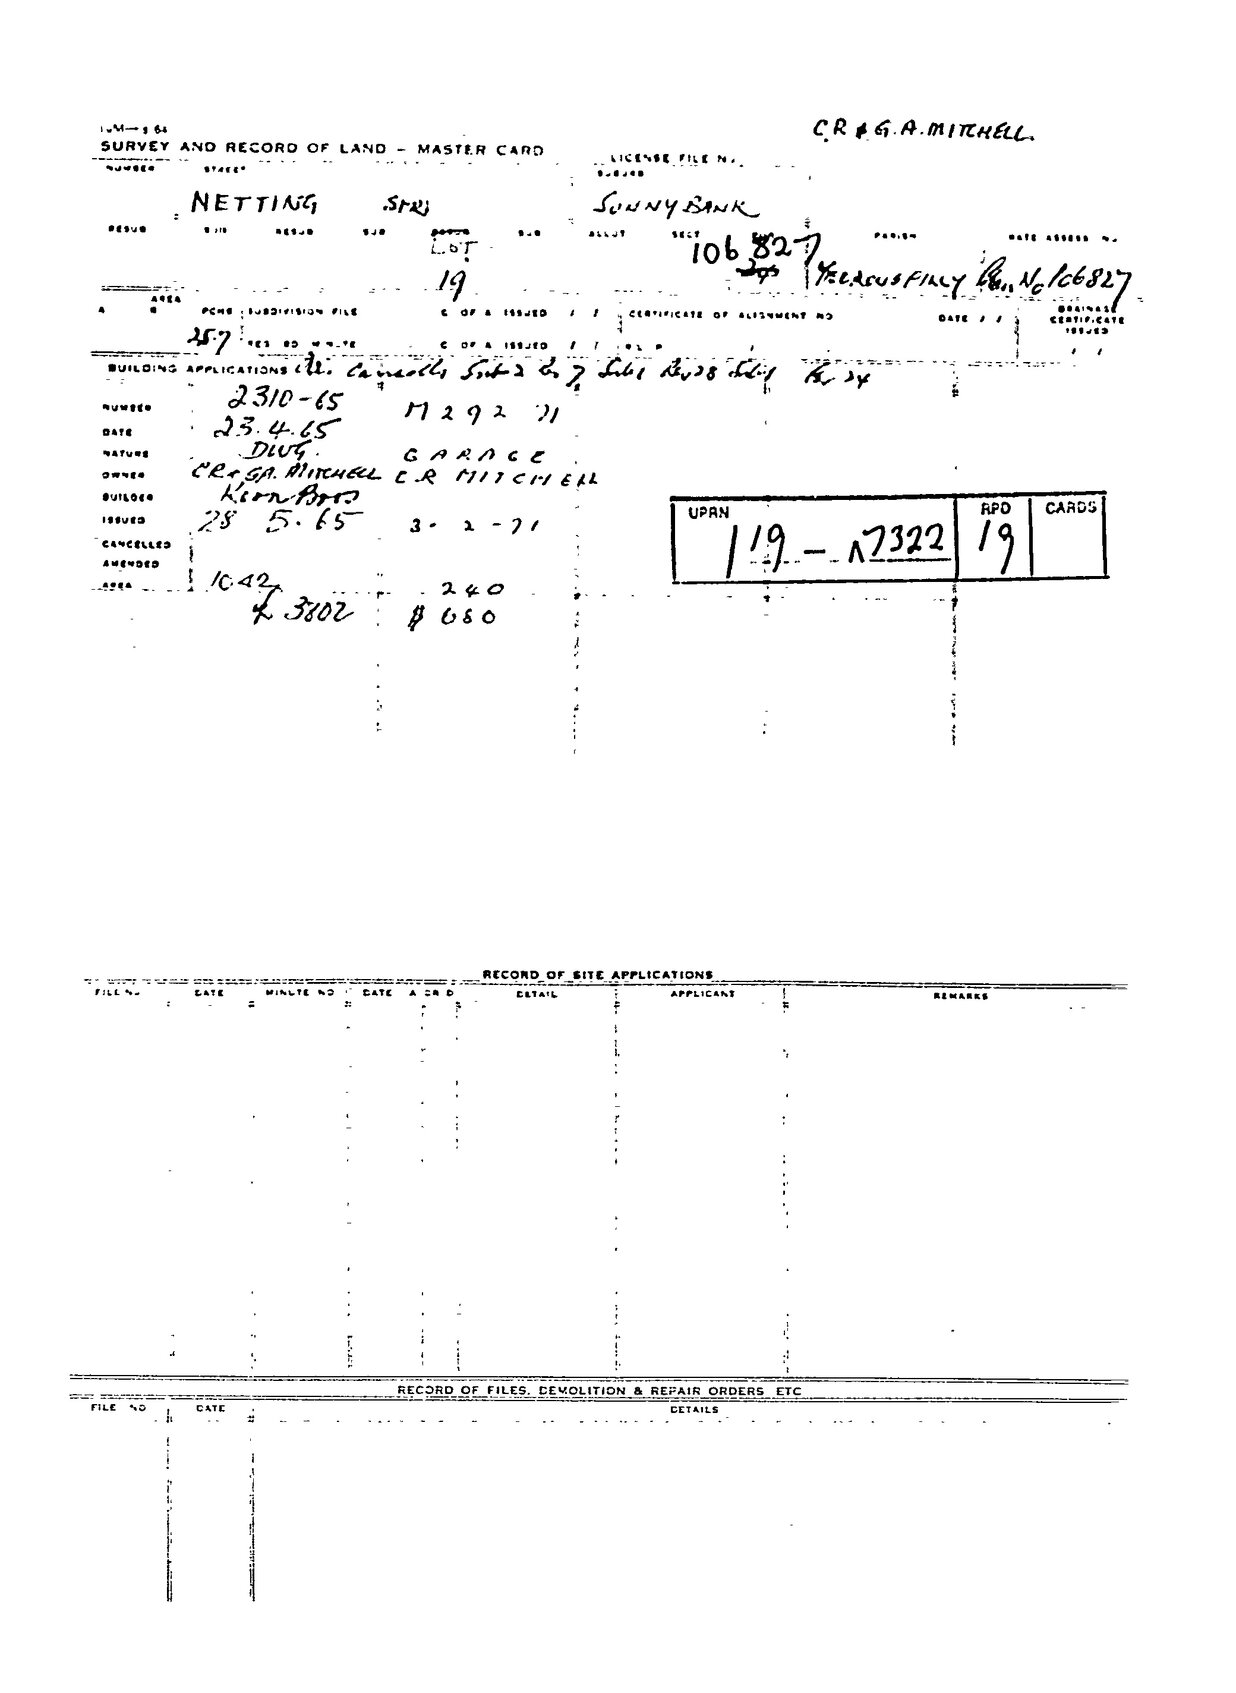 C.R & G.A. MITCHELL.
SURVEY AND RECORD OF LAND – MASTER CARD
LICENSE FILE No.
NUMBER STREET SUBURB
NETTING SUNNYBANK
RESUB SUB RESUB SUB SUB ALLOT SECT PARISH RATE ASSESS No.
LOT 106827
19 YEERONGPILLY No 106827
AREA
A R PCHS SUBDIVISION FILE C OF A ISSUED / / CERTIFICATE OF ALIGNMENT NO DATE / / DRAINAGE CERTIFICATE ISSUED
25.7 RES SD MINUTE C OF A ISSUED / / R L P / / /
BUILDING APPLICATIONS Cancells Sub 2
NUMBER 2310-65 M 292 71
DATE 23.4.65
NATURE DWG. GARAGE
OWNER CR & GA. MITCHELL C.R MITCHELL
BUILDER Kern Bros
ISSUED 28 5.65 3-2-71
CANCELLED
AMENDED
AREA 10.42 240
£ 3802 $ 680
UPRN RPD CARDS
119 – 7322 19
RECORD OF SITE APPLICATIONS
FILE No. DATE MINUTE NO DATE A OR D DETAIL APPLICANT REMARKS
RECORD OF FILES, DEMOLITION & REPAIR ORDERS ETC
FILE NO DATE DETAILS